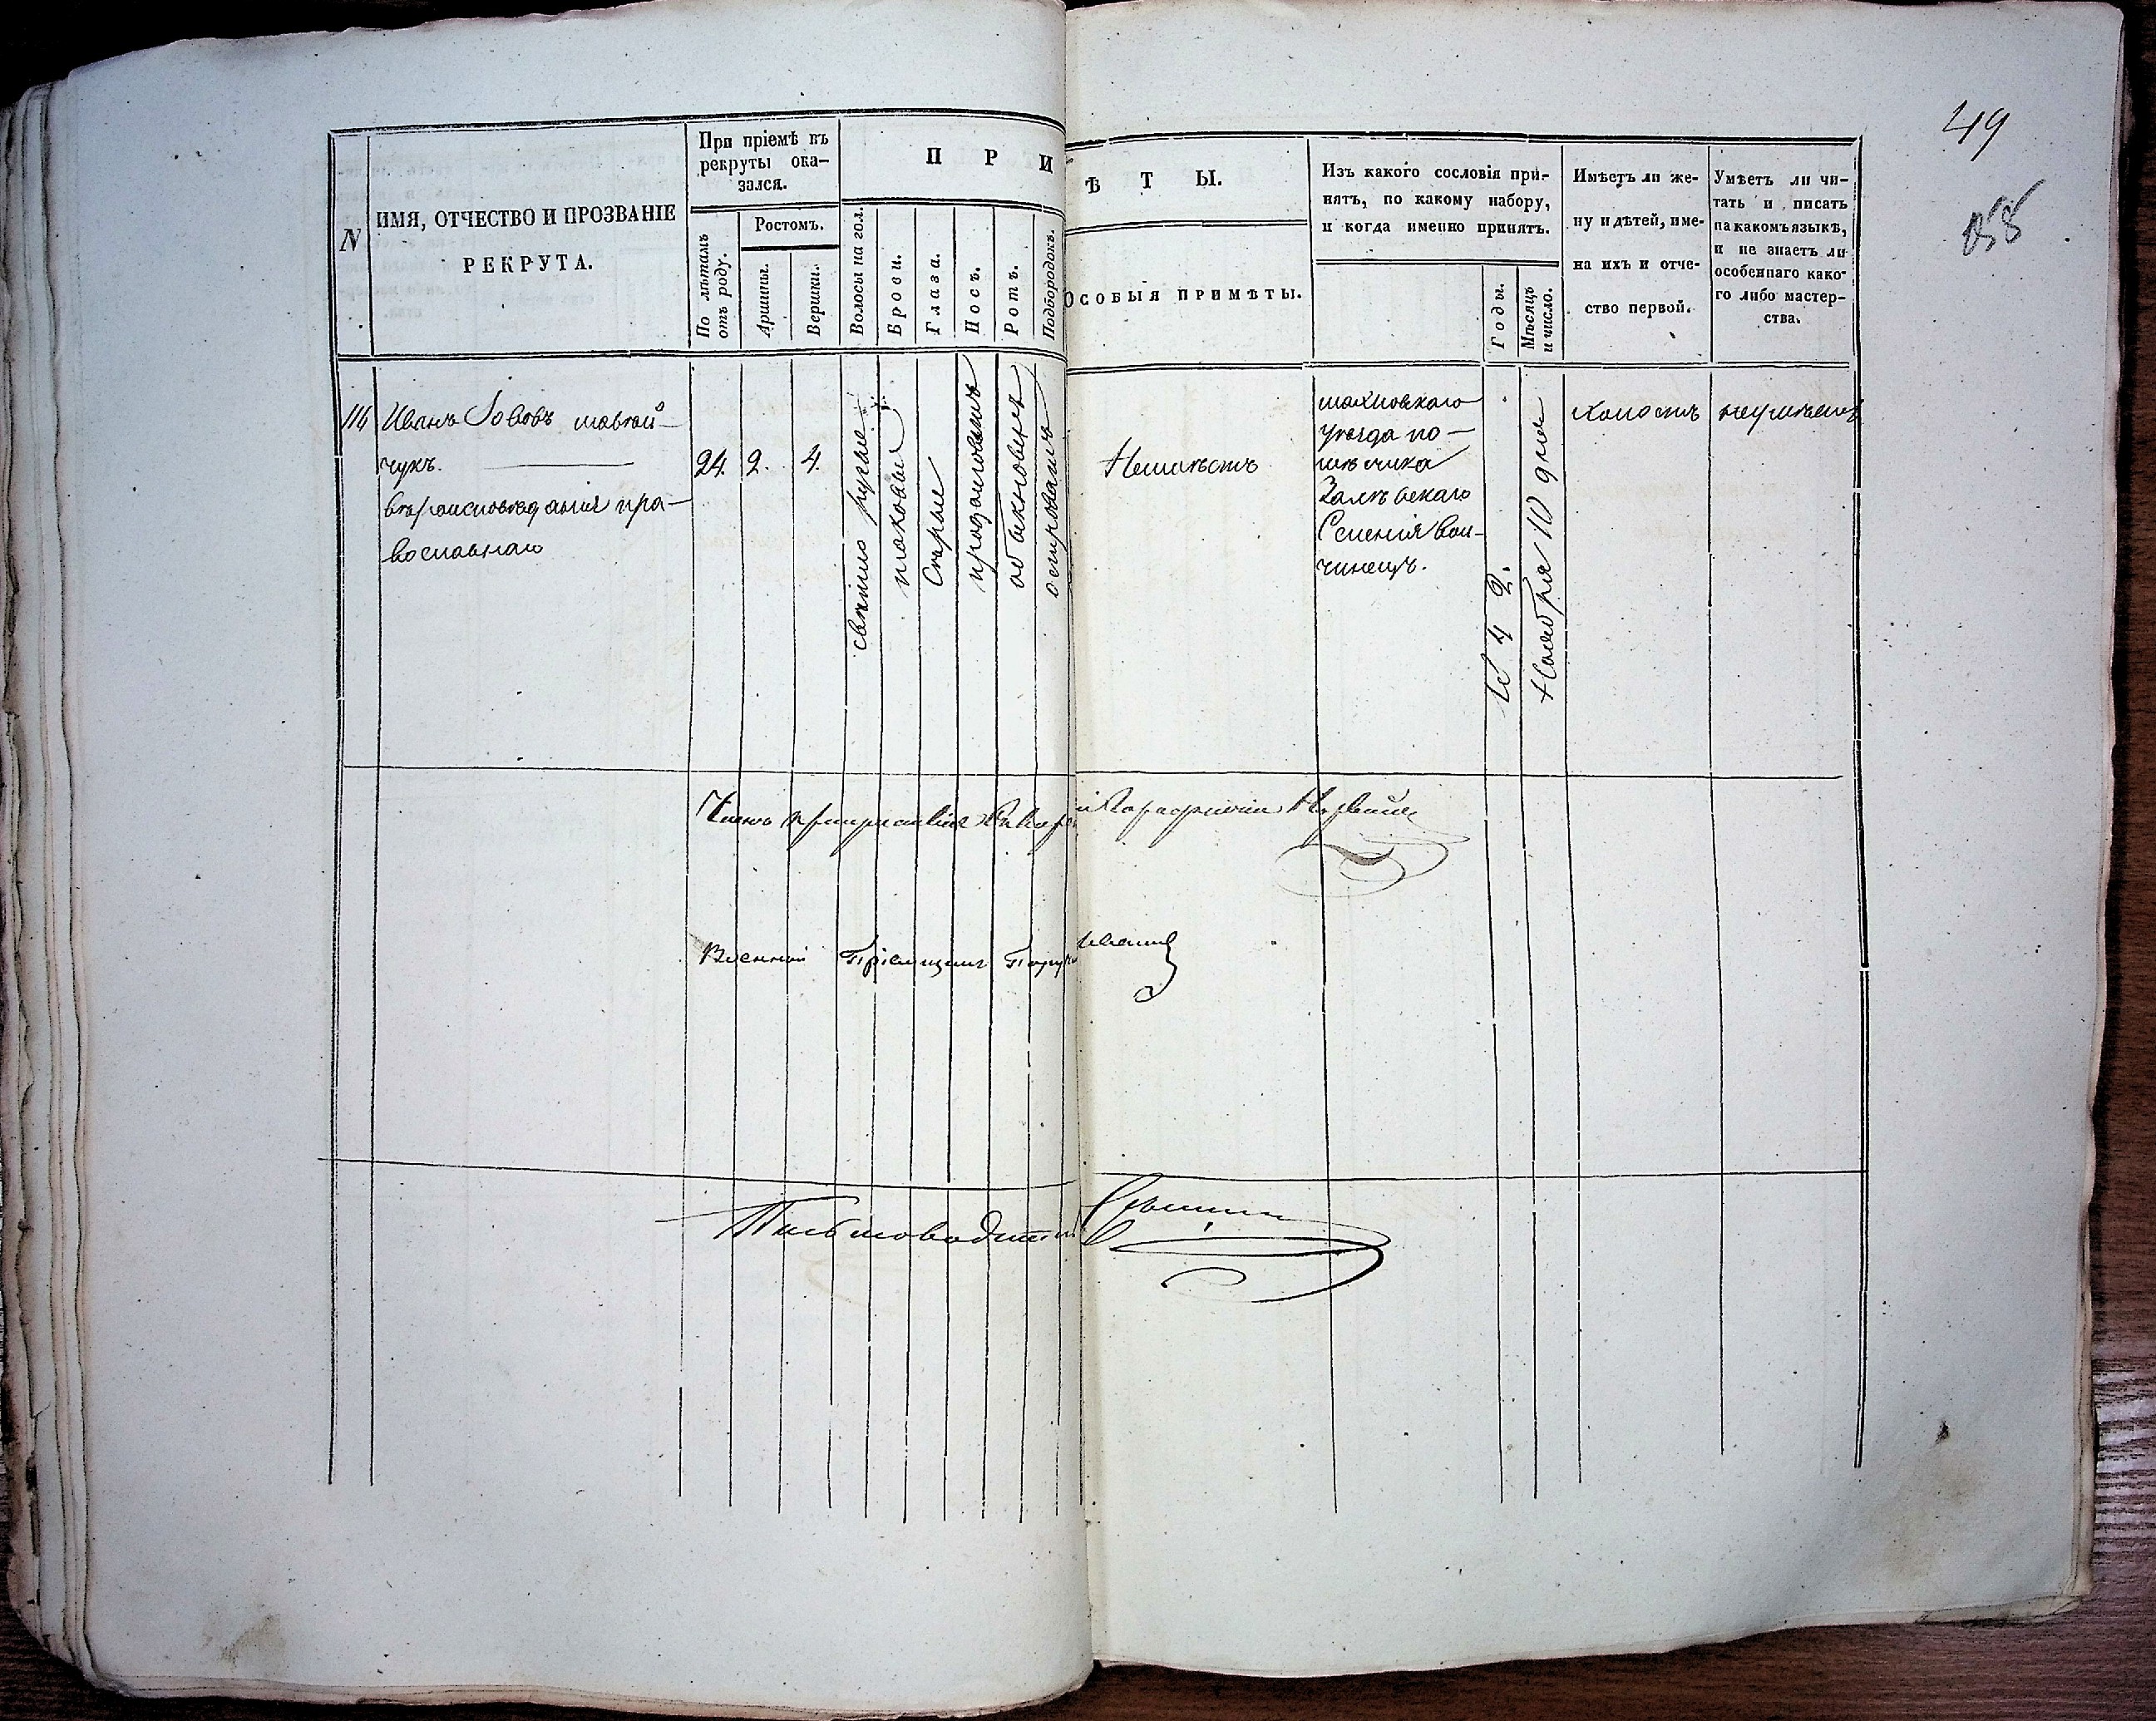 49
858
N
ИМЯ, ОТЧЕСТВО И ПРОЗВАНІЕ
РЕКРУТА.
При пріемѣ въ
рекруты ока-
зался.
По лѣтамъ
отъ роду.
Ростомъ.
Аршины.
Вершки.
П Р И
Волосы на гол.
Брови.
Глаза.
Носъ.
Ротъ.
Подбородокъ.
Ѣ Т Ы.
ОСОБЫЯ ПРИМѢТЫ.
Изъ какого сословія при-
нятъ, по какому набору,
и когда именно принятъ.
Годы.
Мѣсяцъ
и число.
Имѣетъ ли же-
ну и дѣтей, име-
на ихъ и отче-
ство первой.
Умѣетъ ли чи-
тать и писать
на какомъ языкѣ,
и не знаетъ ли
особеннаго како-
го либо мастер-
ства.
114
Иванъ Іововъ
чукъ.
вѣроисповеданія пра-
вославнаго
24.
2.
4.
свѣтло русые
таковыя
Серые
продолговатъ
обыкновенъ
Неимѣетъ
махновского
уезда по-
мѣщика
Залѣвскаго
Селенія вол-
чинецъ.
1842.
Ноября 10 дня
холостъ
неумѣетъ
Военный Пріемщикъ
Письмоводитель